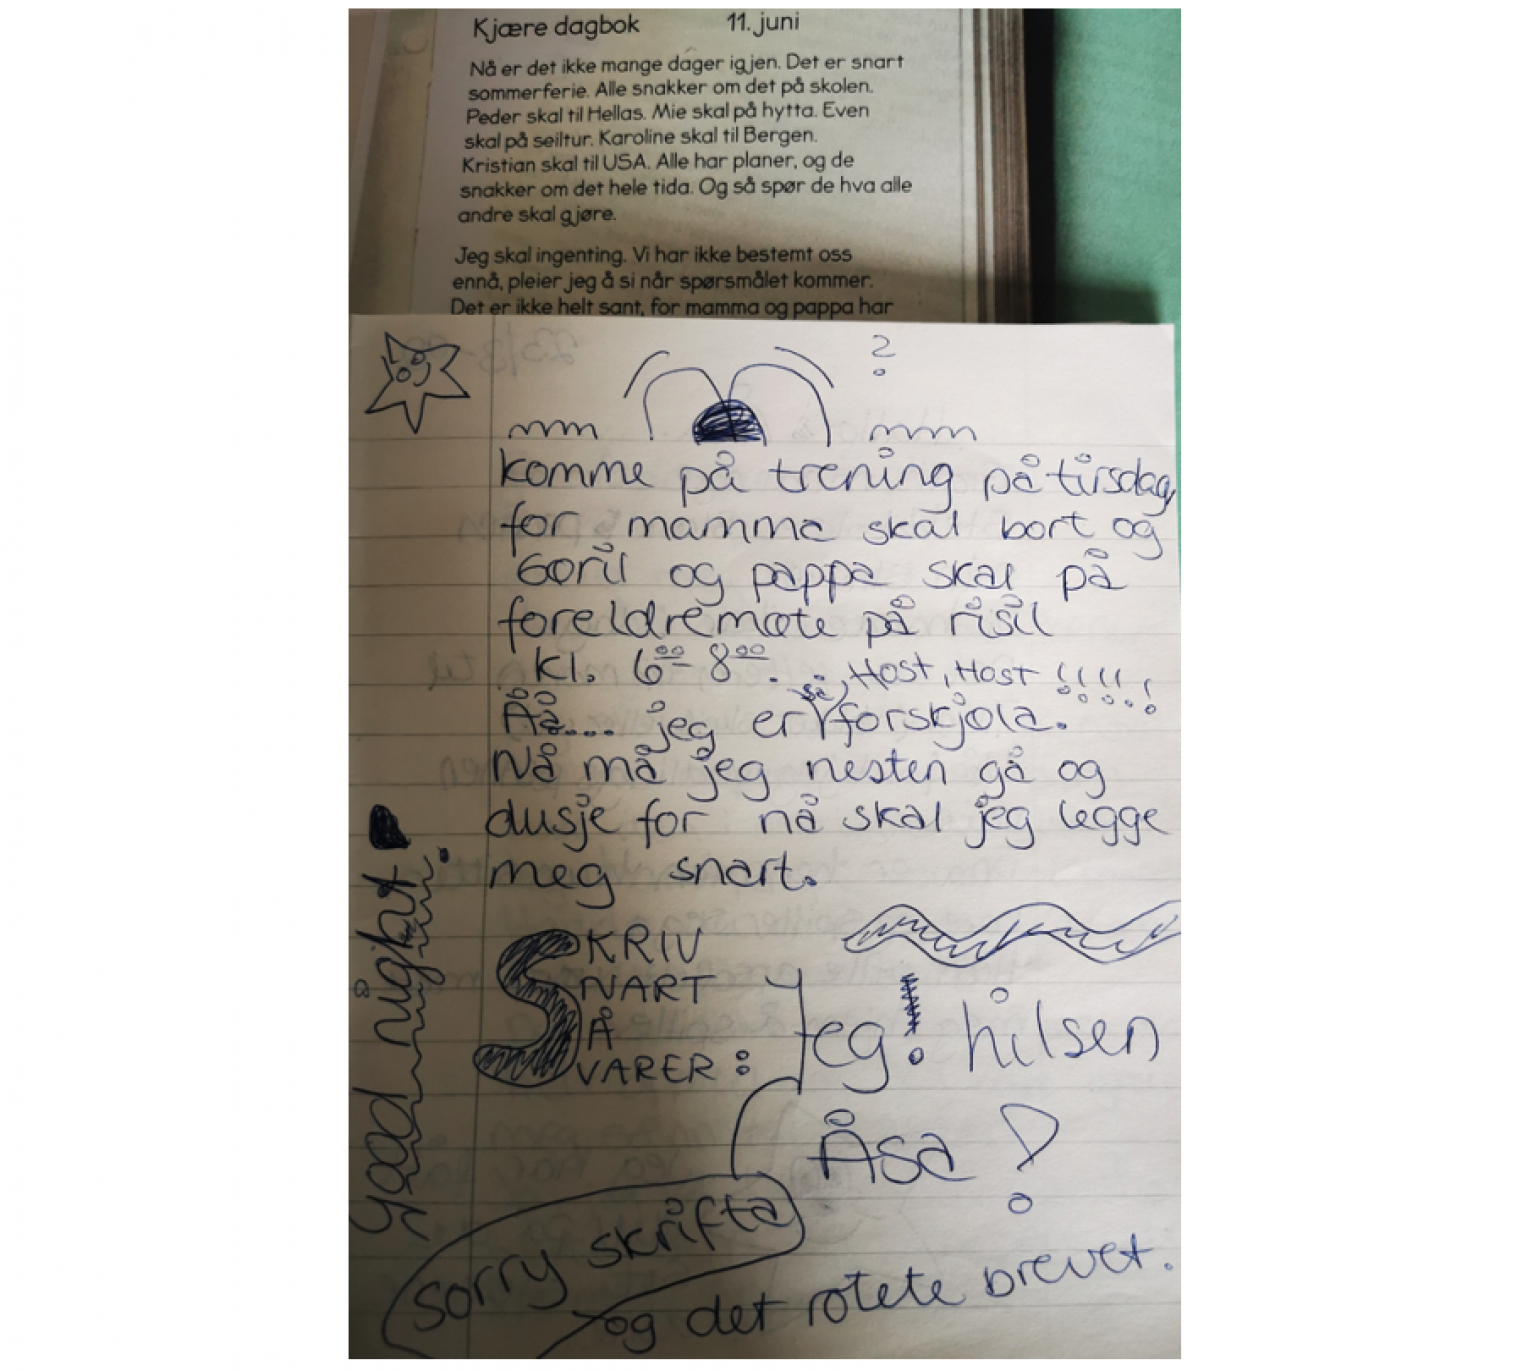 Kjære dagbok 11. juni
Nå er det ikke mange dager igjen. Det er snart
sommerferie. Alle snakker om det på skolen.
Peder skal til Hellas. Mie skal på hytta. Even
skal på seiltur. Karoline skal til Bergen.
Kristian skal til USA. Alle har planer, og de
snakker om det hele tida. Og så spør de hva alle
andre skal gjøre.
Jeg skal ingenting. Vi har ikke bestemt oss
ennå, pleier jeg å si når spørsmålet kommer.
Det er ikke helt sant, for mamma og pappa har
?
komme på trening på tirsdag,
for mamma skal bort og
Goril og pappa skal på
foreldremøte på risil
kl. 6⁰⁰-8⁰⁰.
, Host, Host !!!!!
Åå.... jeg er så forskjøla.
Nå må jeg nesten gå og
dusje for nå skal jeg legge
meg snart.
SKRIV
SNART
SÅ
SVARER: Jeg! hilsen
Åsa !
Good night!
sorry skrifta
og det rotete brevet.